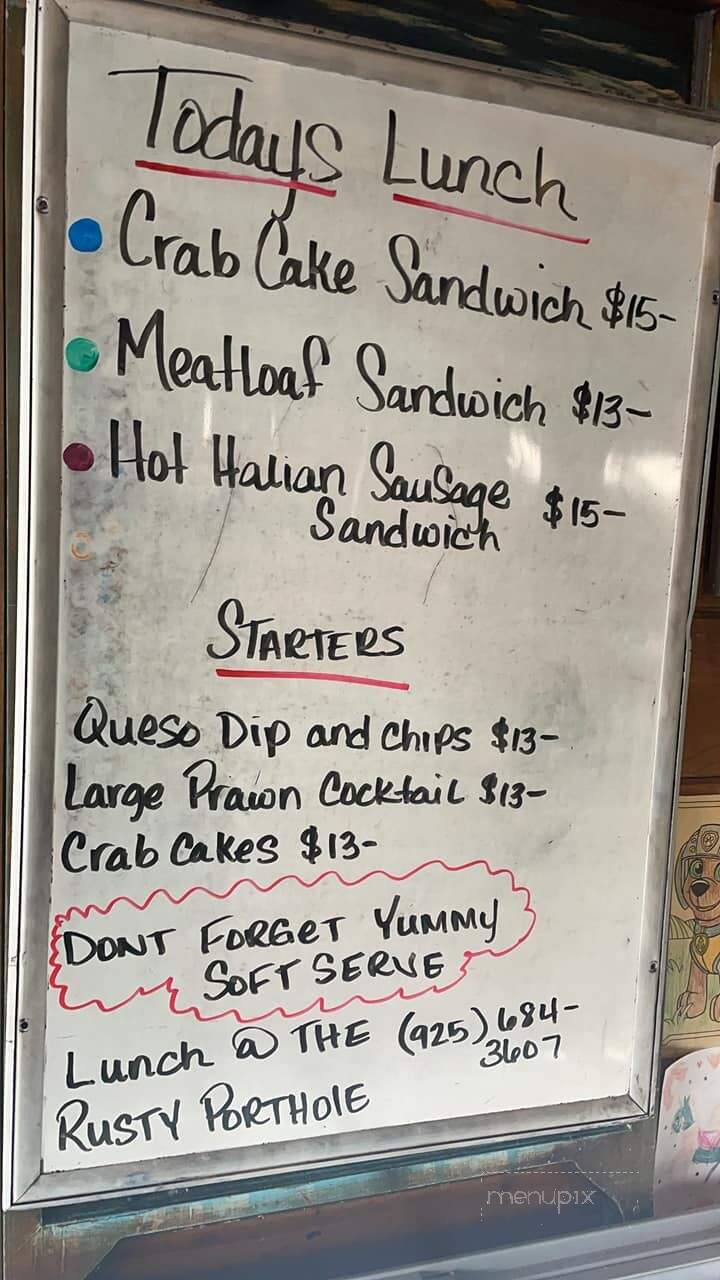 Todays Lunch
Crab Cake Sandwich $15-
Meatloaf Sandwich $13-
Hot Italian Sausage $15-
Sandwich
STARTERS
Queso Dip and Chips $13-
Large Prawn Cocktail $13-
Crab Cakes $13-
DONT FORGET YUMMY
SOFT SERVE
Lunch @ THE (925) 684-
3607
RUSTY PORTHOLE
menupix